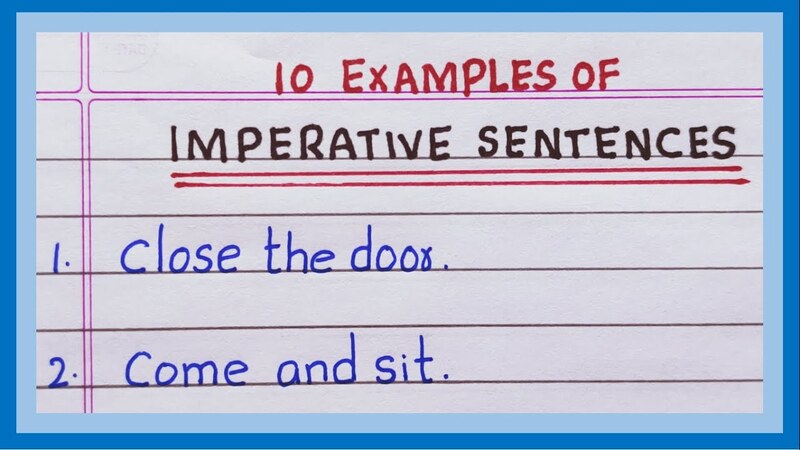 10 EXAMPLES OF
IMPERATIVE SENTENCES
1. Close the door.
2. Come and sit.